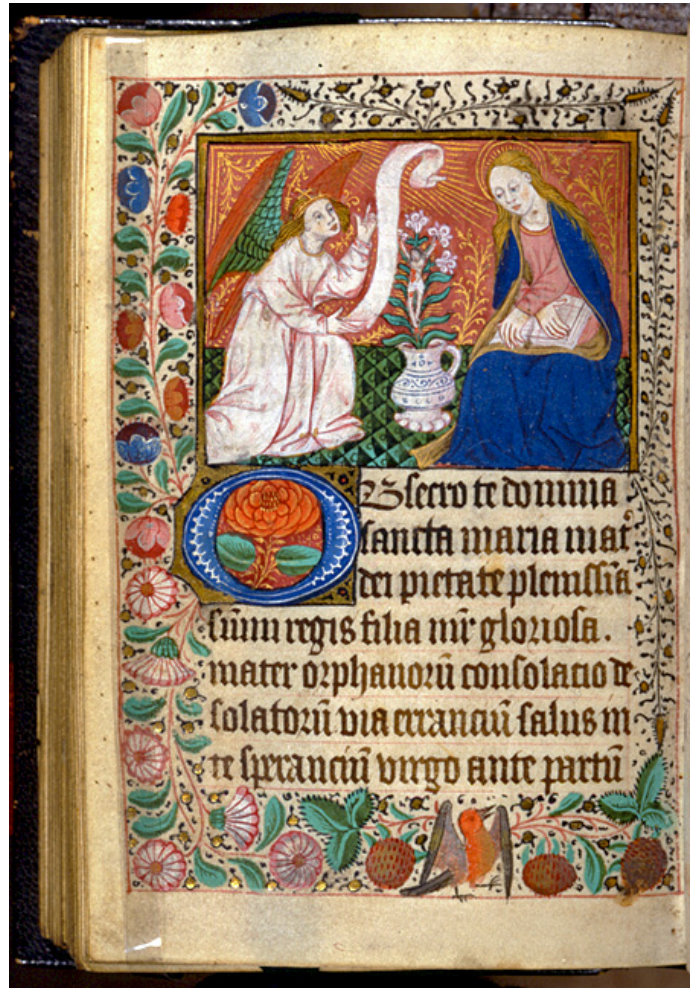 OBsecro te domina
sancta maria mat᷑
dei pietate plenissiā
sūmi regis filia mr̄ gloriosa.
mater orphanorū consolacio de
solatorū via erranciū salus in
te speranciū virgo ante partū